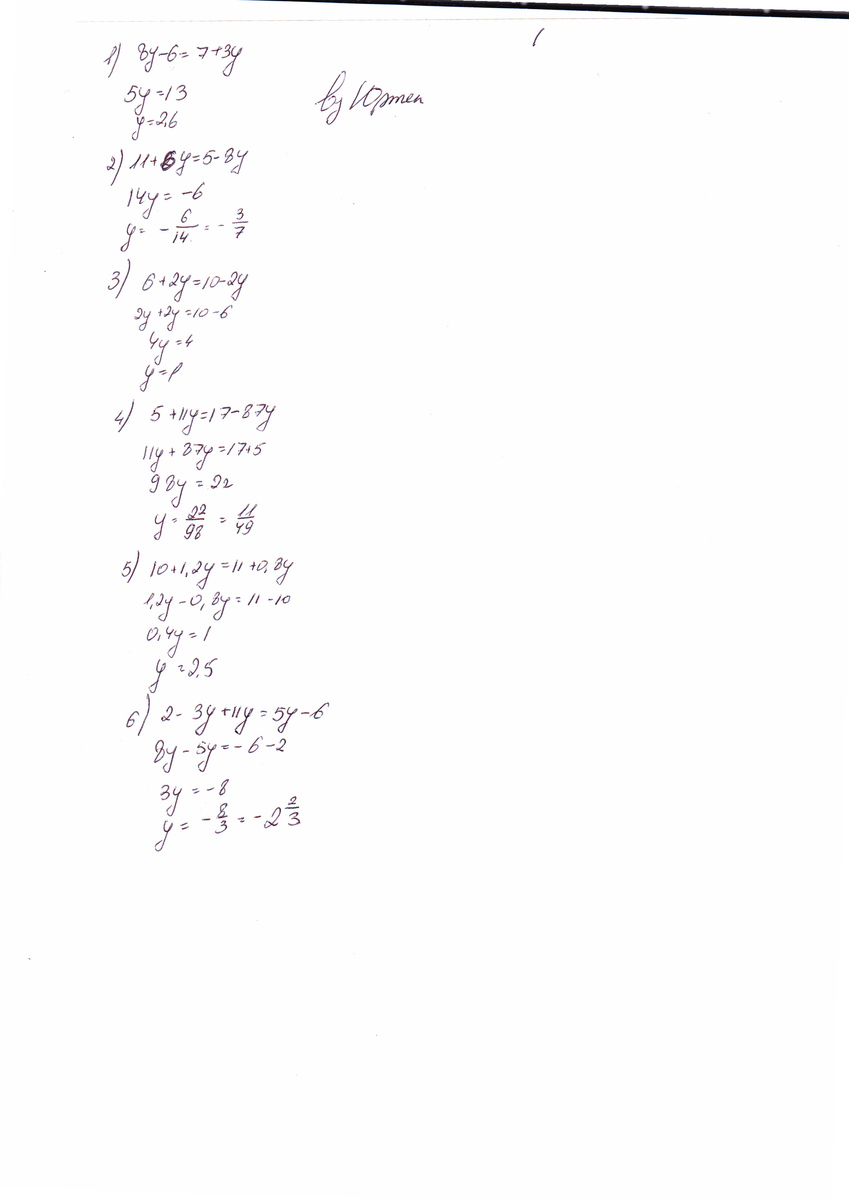 1) 8y-6=7+3y
5y=13
y=2,6
by Юртен
2) 11+6y=5-8y
14y=-6
y=-6/14=-3/7
3) 6+2y=10-2y
2y+2y=10-6
4y=4
y=1
4) 5+11y=17-87y
11y+87y=17+5
98y=22
y=22/98=11/49
5) 10+1,2y=11+0,8y
1,2y-0,8y=11-10
0,4y=1
y=2,5
6) 2-3y+11y=5y-6
8y-5y=-6-2
3y=-8
y=-8/3=-2 2/3